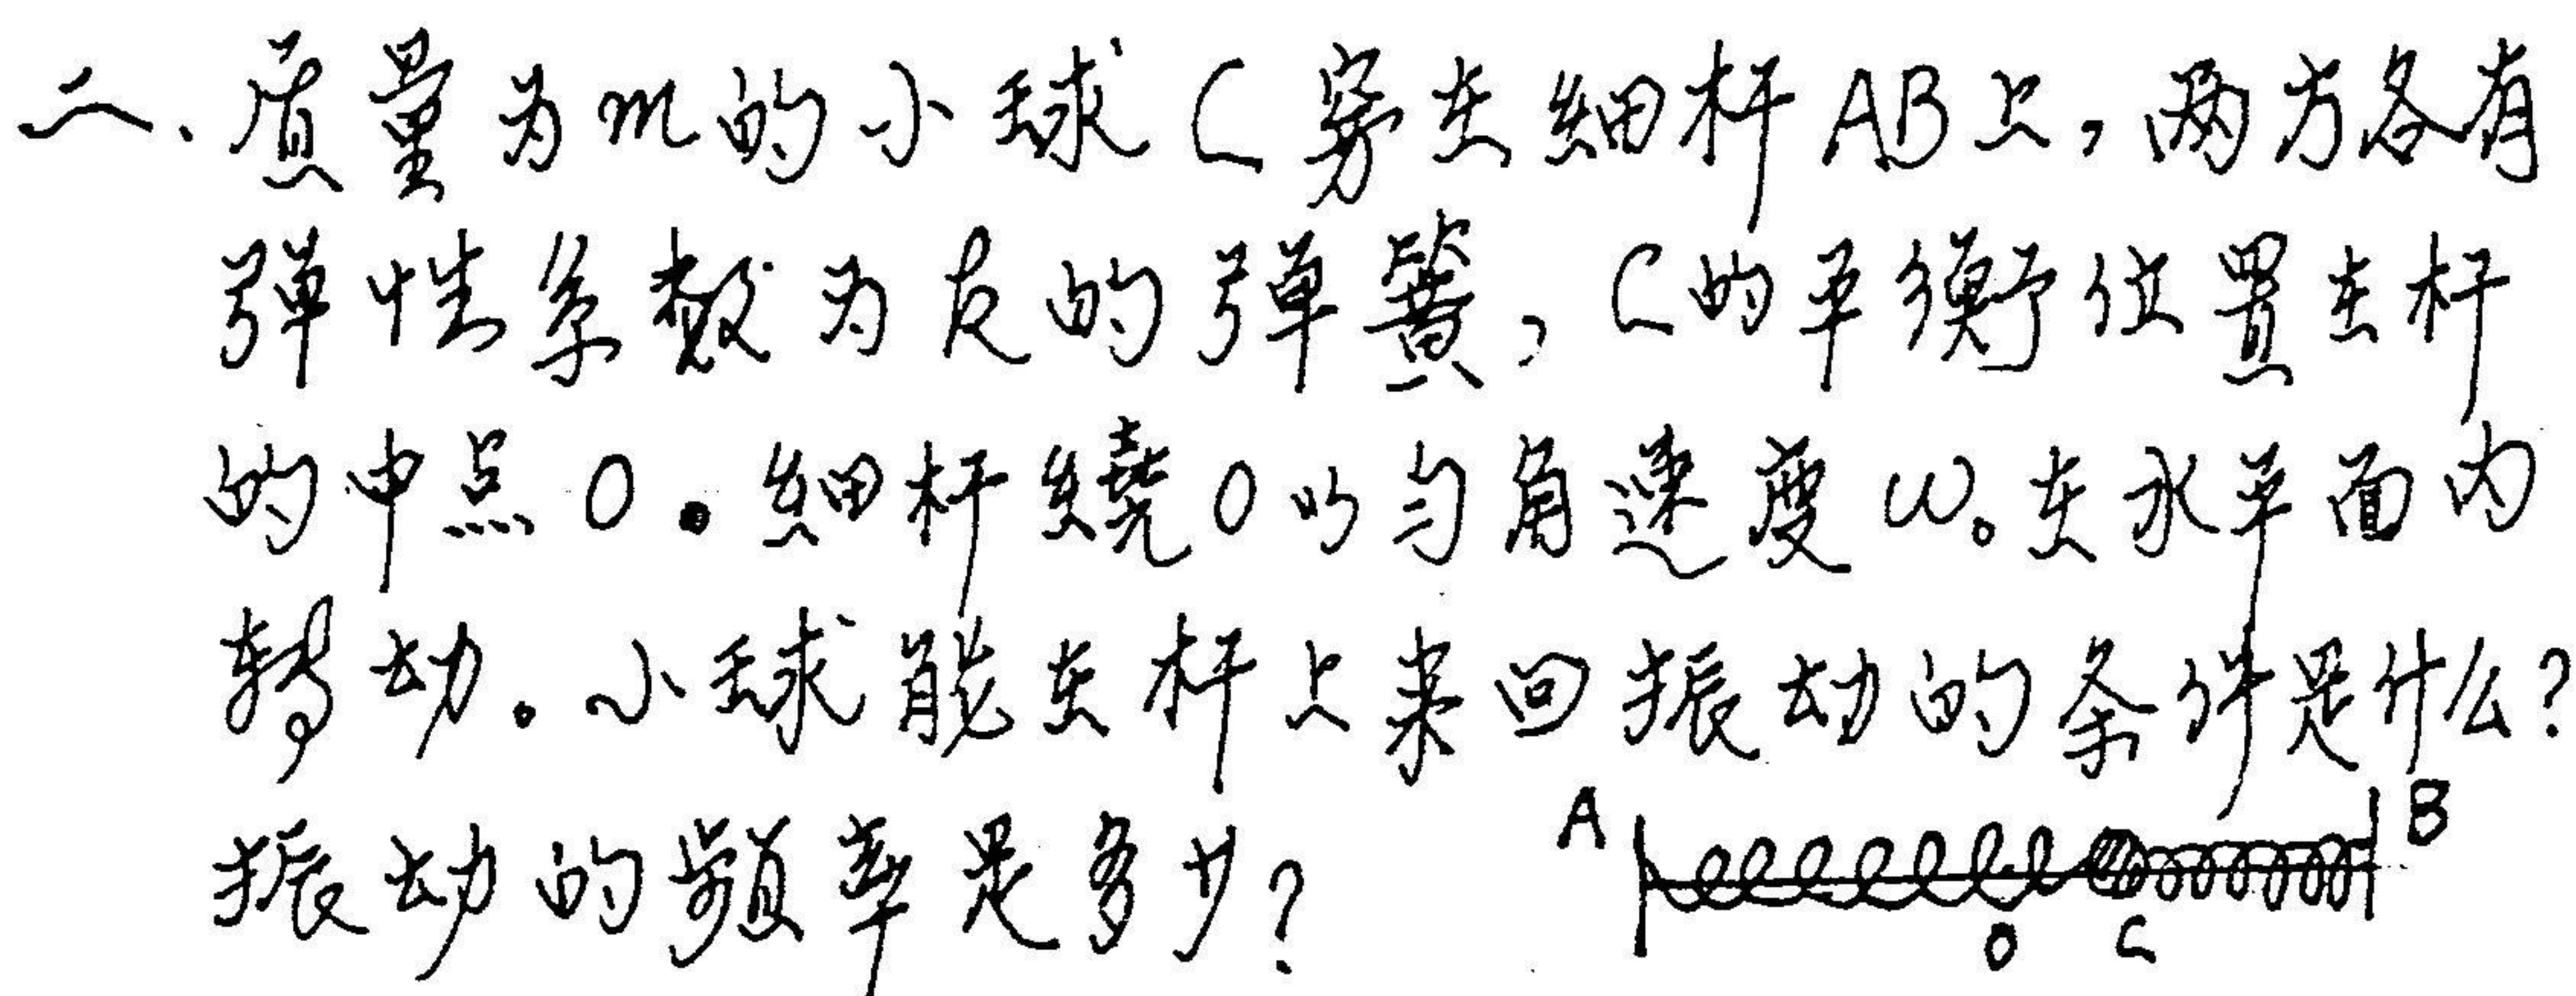 二、质量为m的小球C穿在细杆AB上,两方各有
弹性系数为k的弹簧,C的平衡位置在杆
的中点O。细杆绕O以匀角速度ω₀在水平面内
转动。小球能在杆上来回振动的条件是什么?
振动的频率是多少?
A B
O C